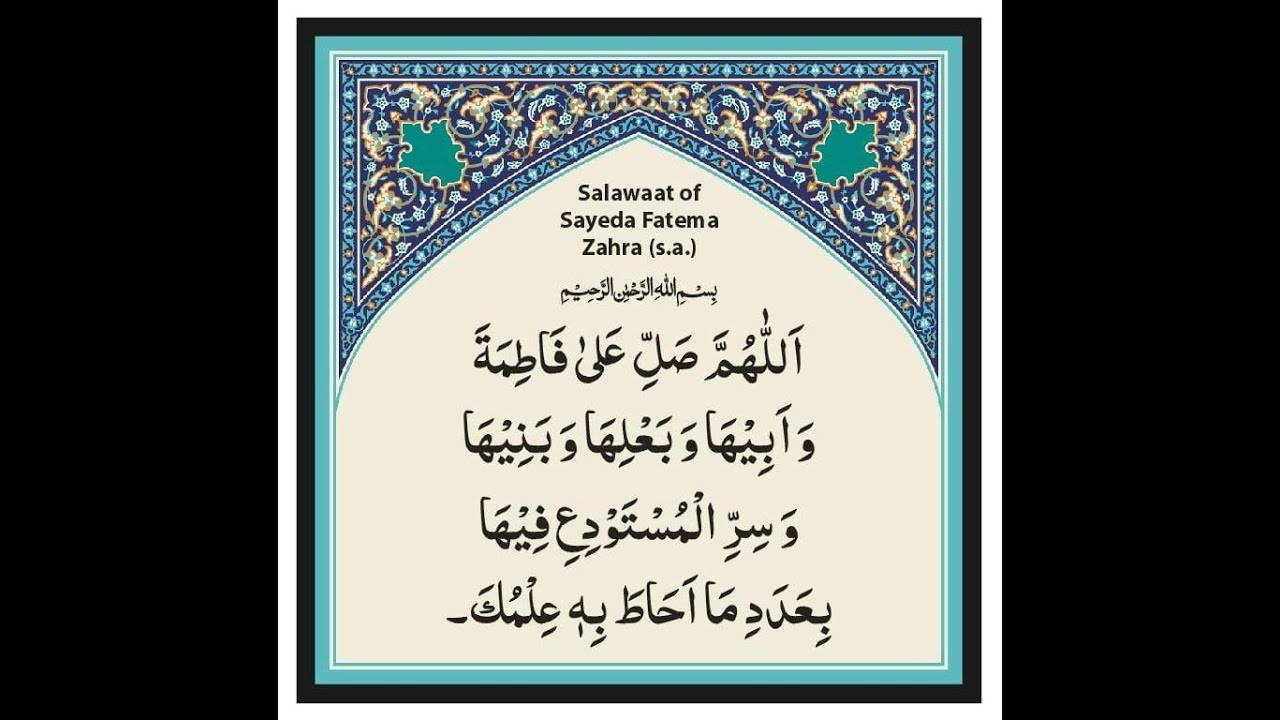 Salawaat of
Sayeda Fatema
Zahra (s.a.)
بِسْمِ اللهِ الرَّحْمٰنِ الرَّحِيْمِ
اَللّٰهُمَّ صَلِّ عَلىٰ فَاطِمَةَ
وَ اَبِيْهَا وَ بَعْلِهَا وَ بَنِيْهَا
وَ سِرِّ الْمُسْتَوْدِعِ فِيْهَا
بِعَدَدِ مَا اَحَاطَ بِهٖ عِلْمُكَ۔